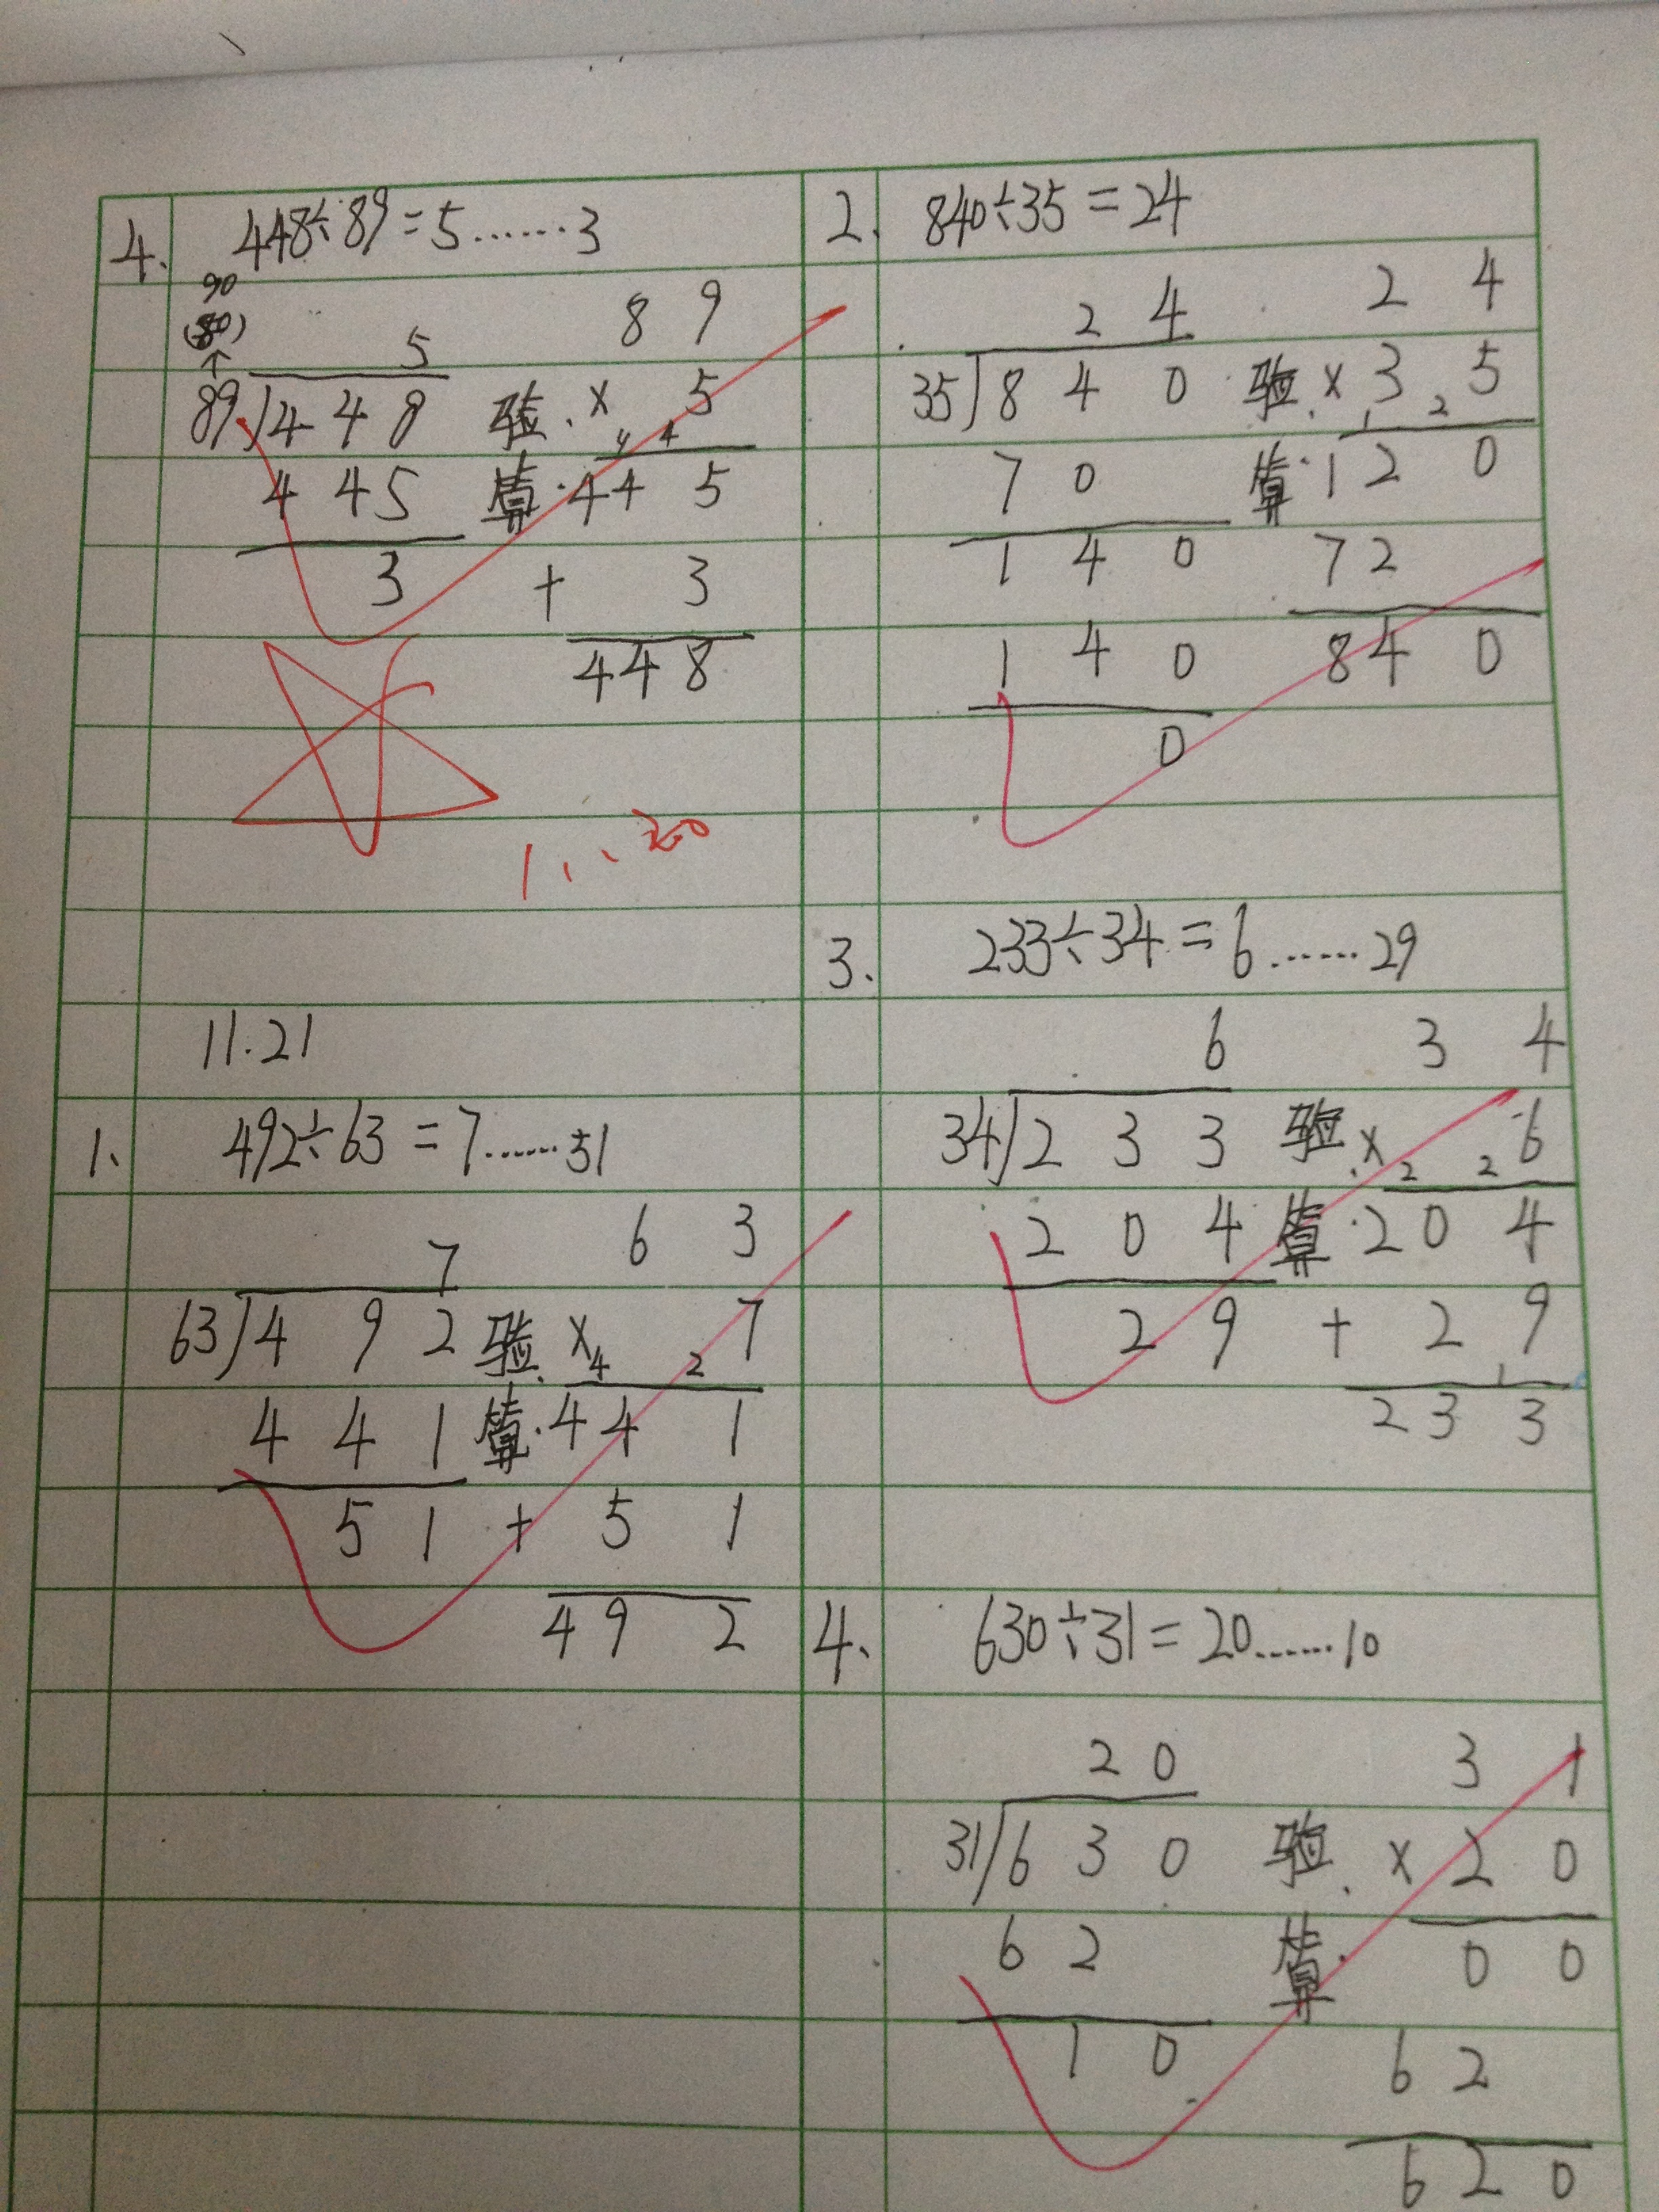 4. 448÷89=5……3
90
(80)
↑
5 89
89)448 验 × 5
4 4
445 算 445
3 + 3
448
11.21
1、 492÷63=7……51
7 63
63)492 验 × 7
4 2
441 算 441
51 + 51
492
2. 840÷35=24
24 24
35)840 验 × 35
1 2
70 算 120
140 72
140 840
0
3. 233÷34=6……29
6 34
34)233 验 × 6
2 2
204 算 204
29 + 29
1
233
4、 630÷31=20……10
20 31
31)630 验 × 20
62 算 00
10 62
620